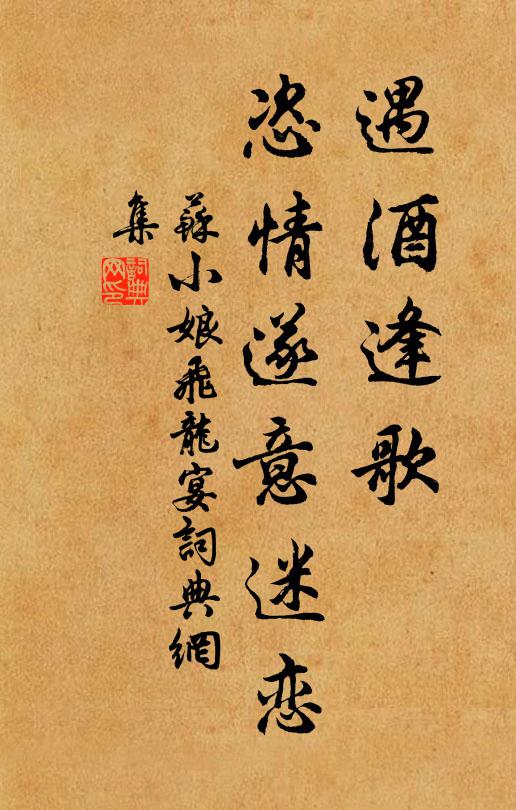 遇酒逢歌
恣情遂意迷恋
蘇小娘飛龍宴詞典網
集
詞典
网印